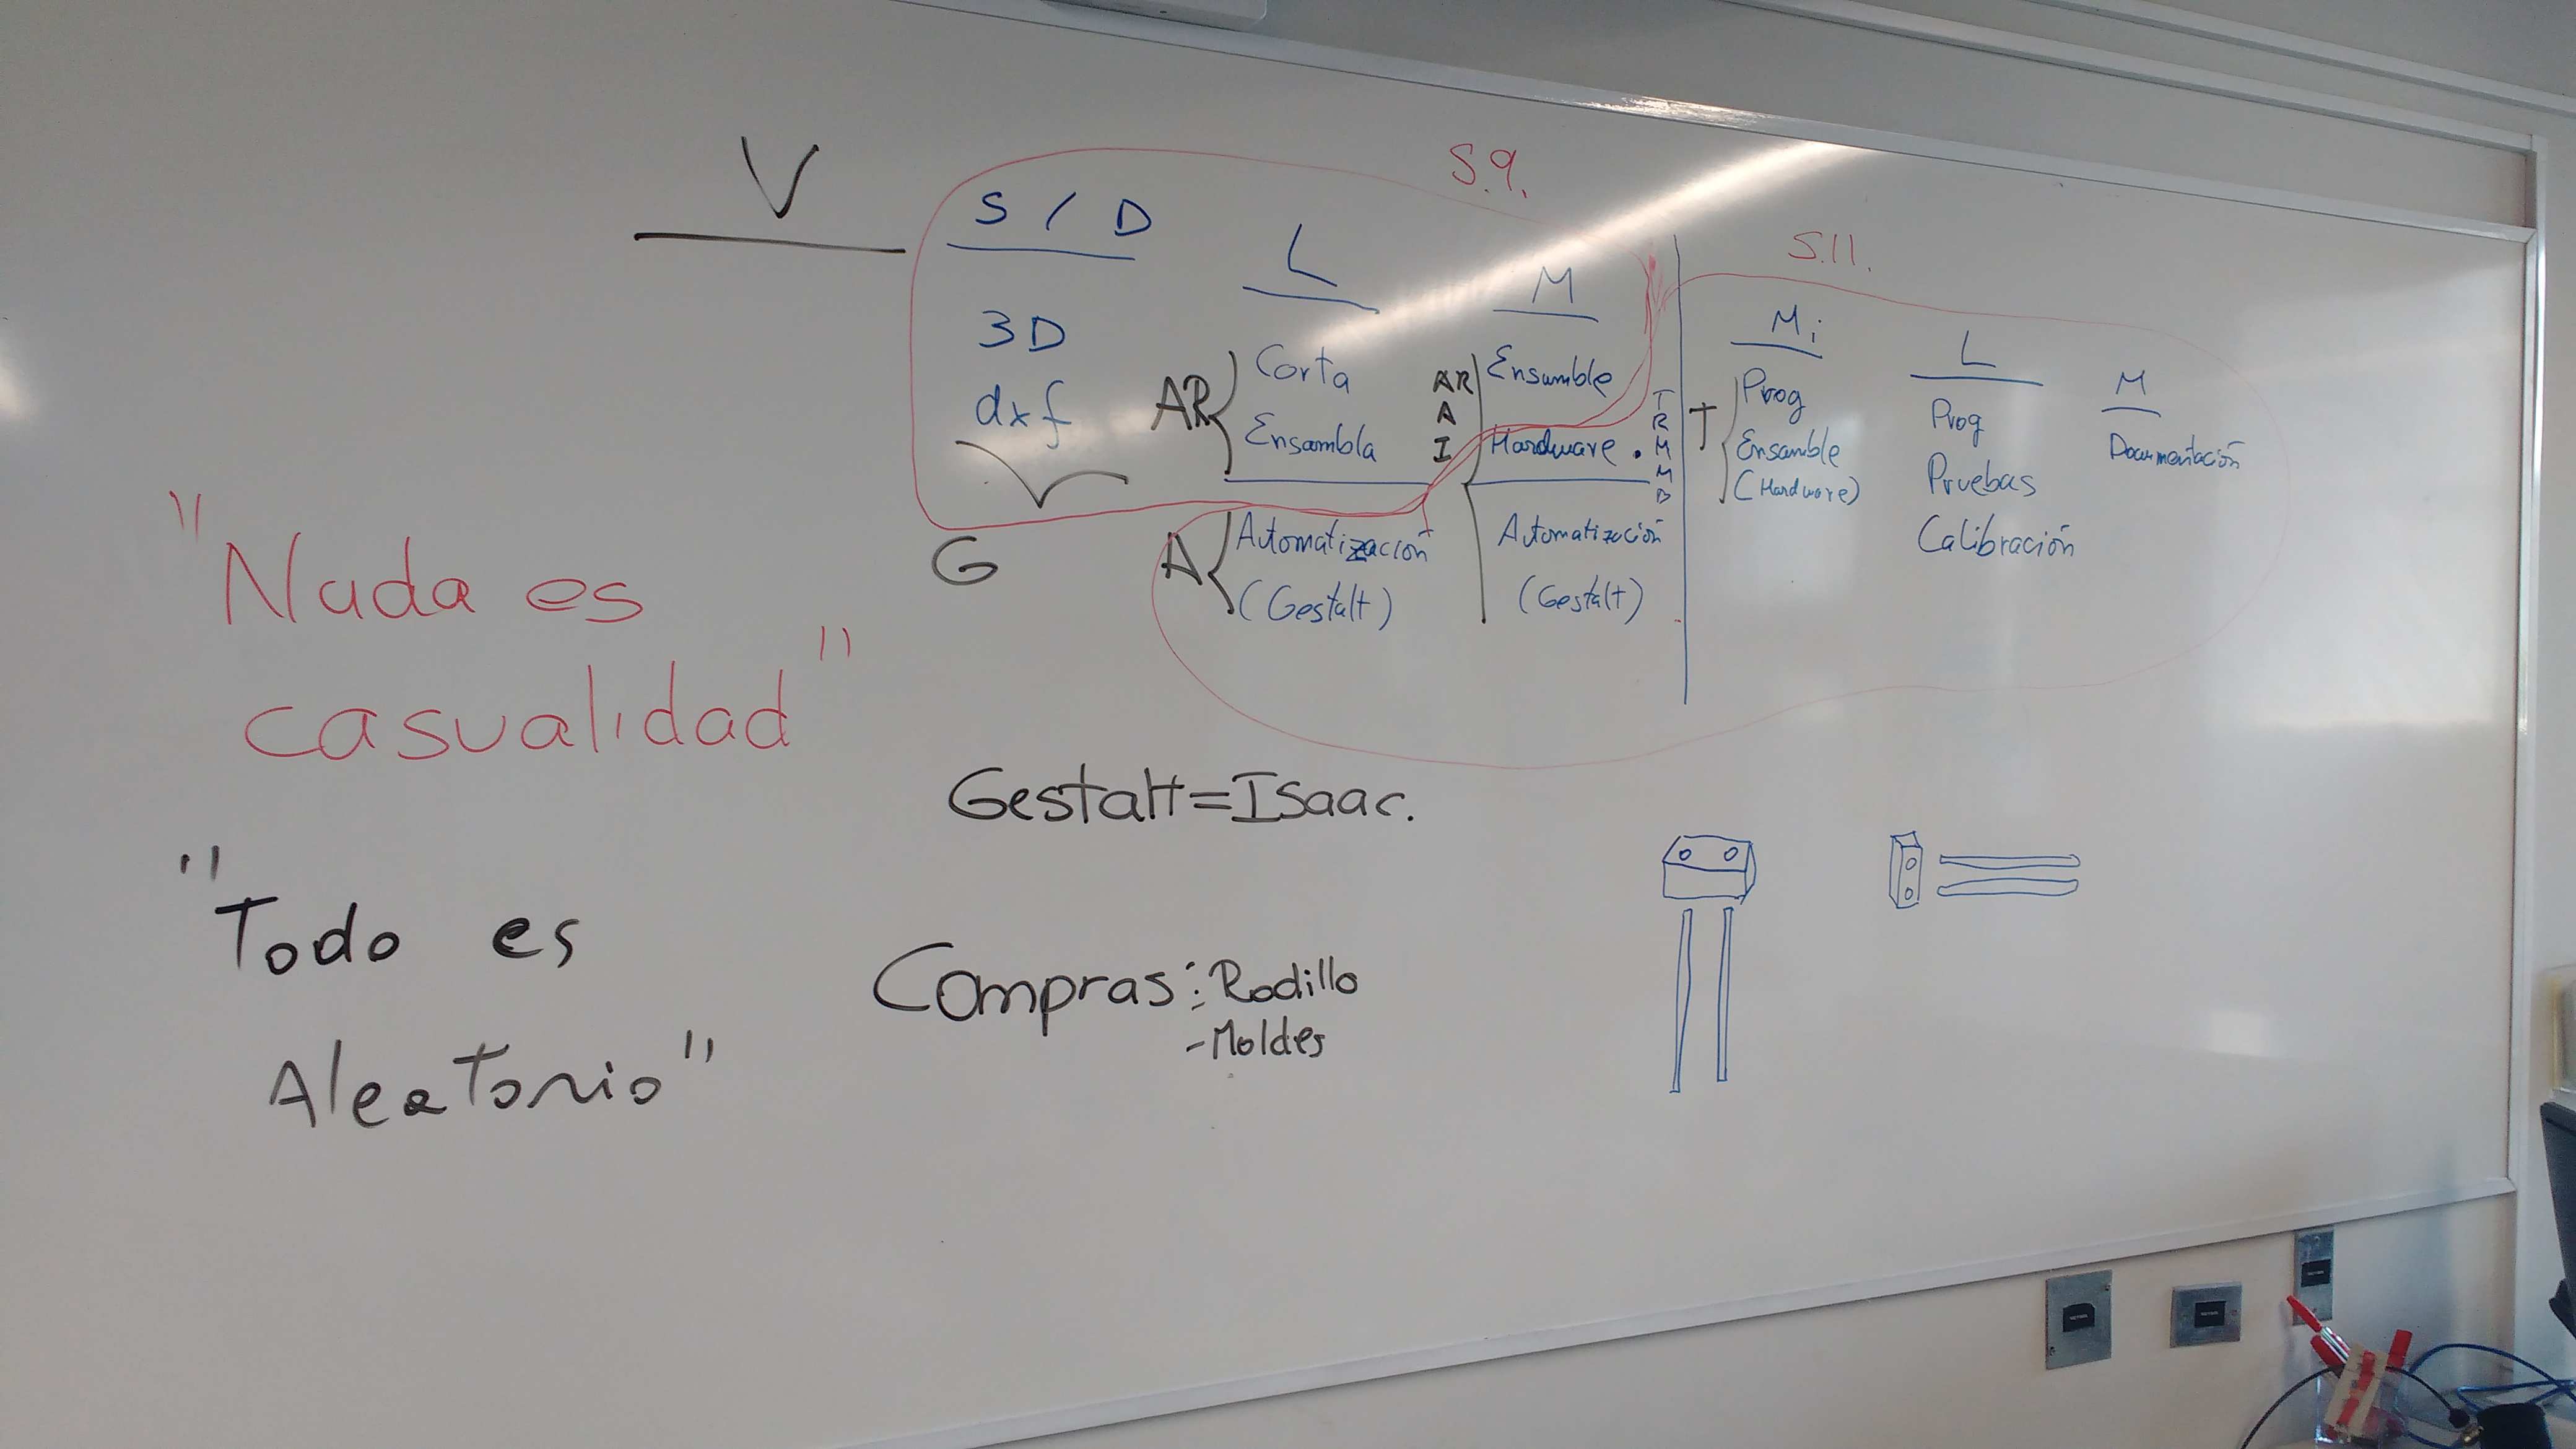 V
S / D
3D
dxf
G
S.9.
L
AR
Corta
Ensambla
A
Automatización
(Gestalt)
M
AR
A
I
Ensamble
Hardware.
Automatización
(Gestalt)
T
R
M
M
B
S.11.
Mi
T
Prog
Ensamble
(Hardware)
L
Prog
Pruebas
Calibración
M
Documentación
"Nada es
casualidad"
"Todo es
Aleatorio"
Gestalt=Isaac.
Compras: Rodillo
-Moldes